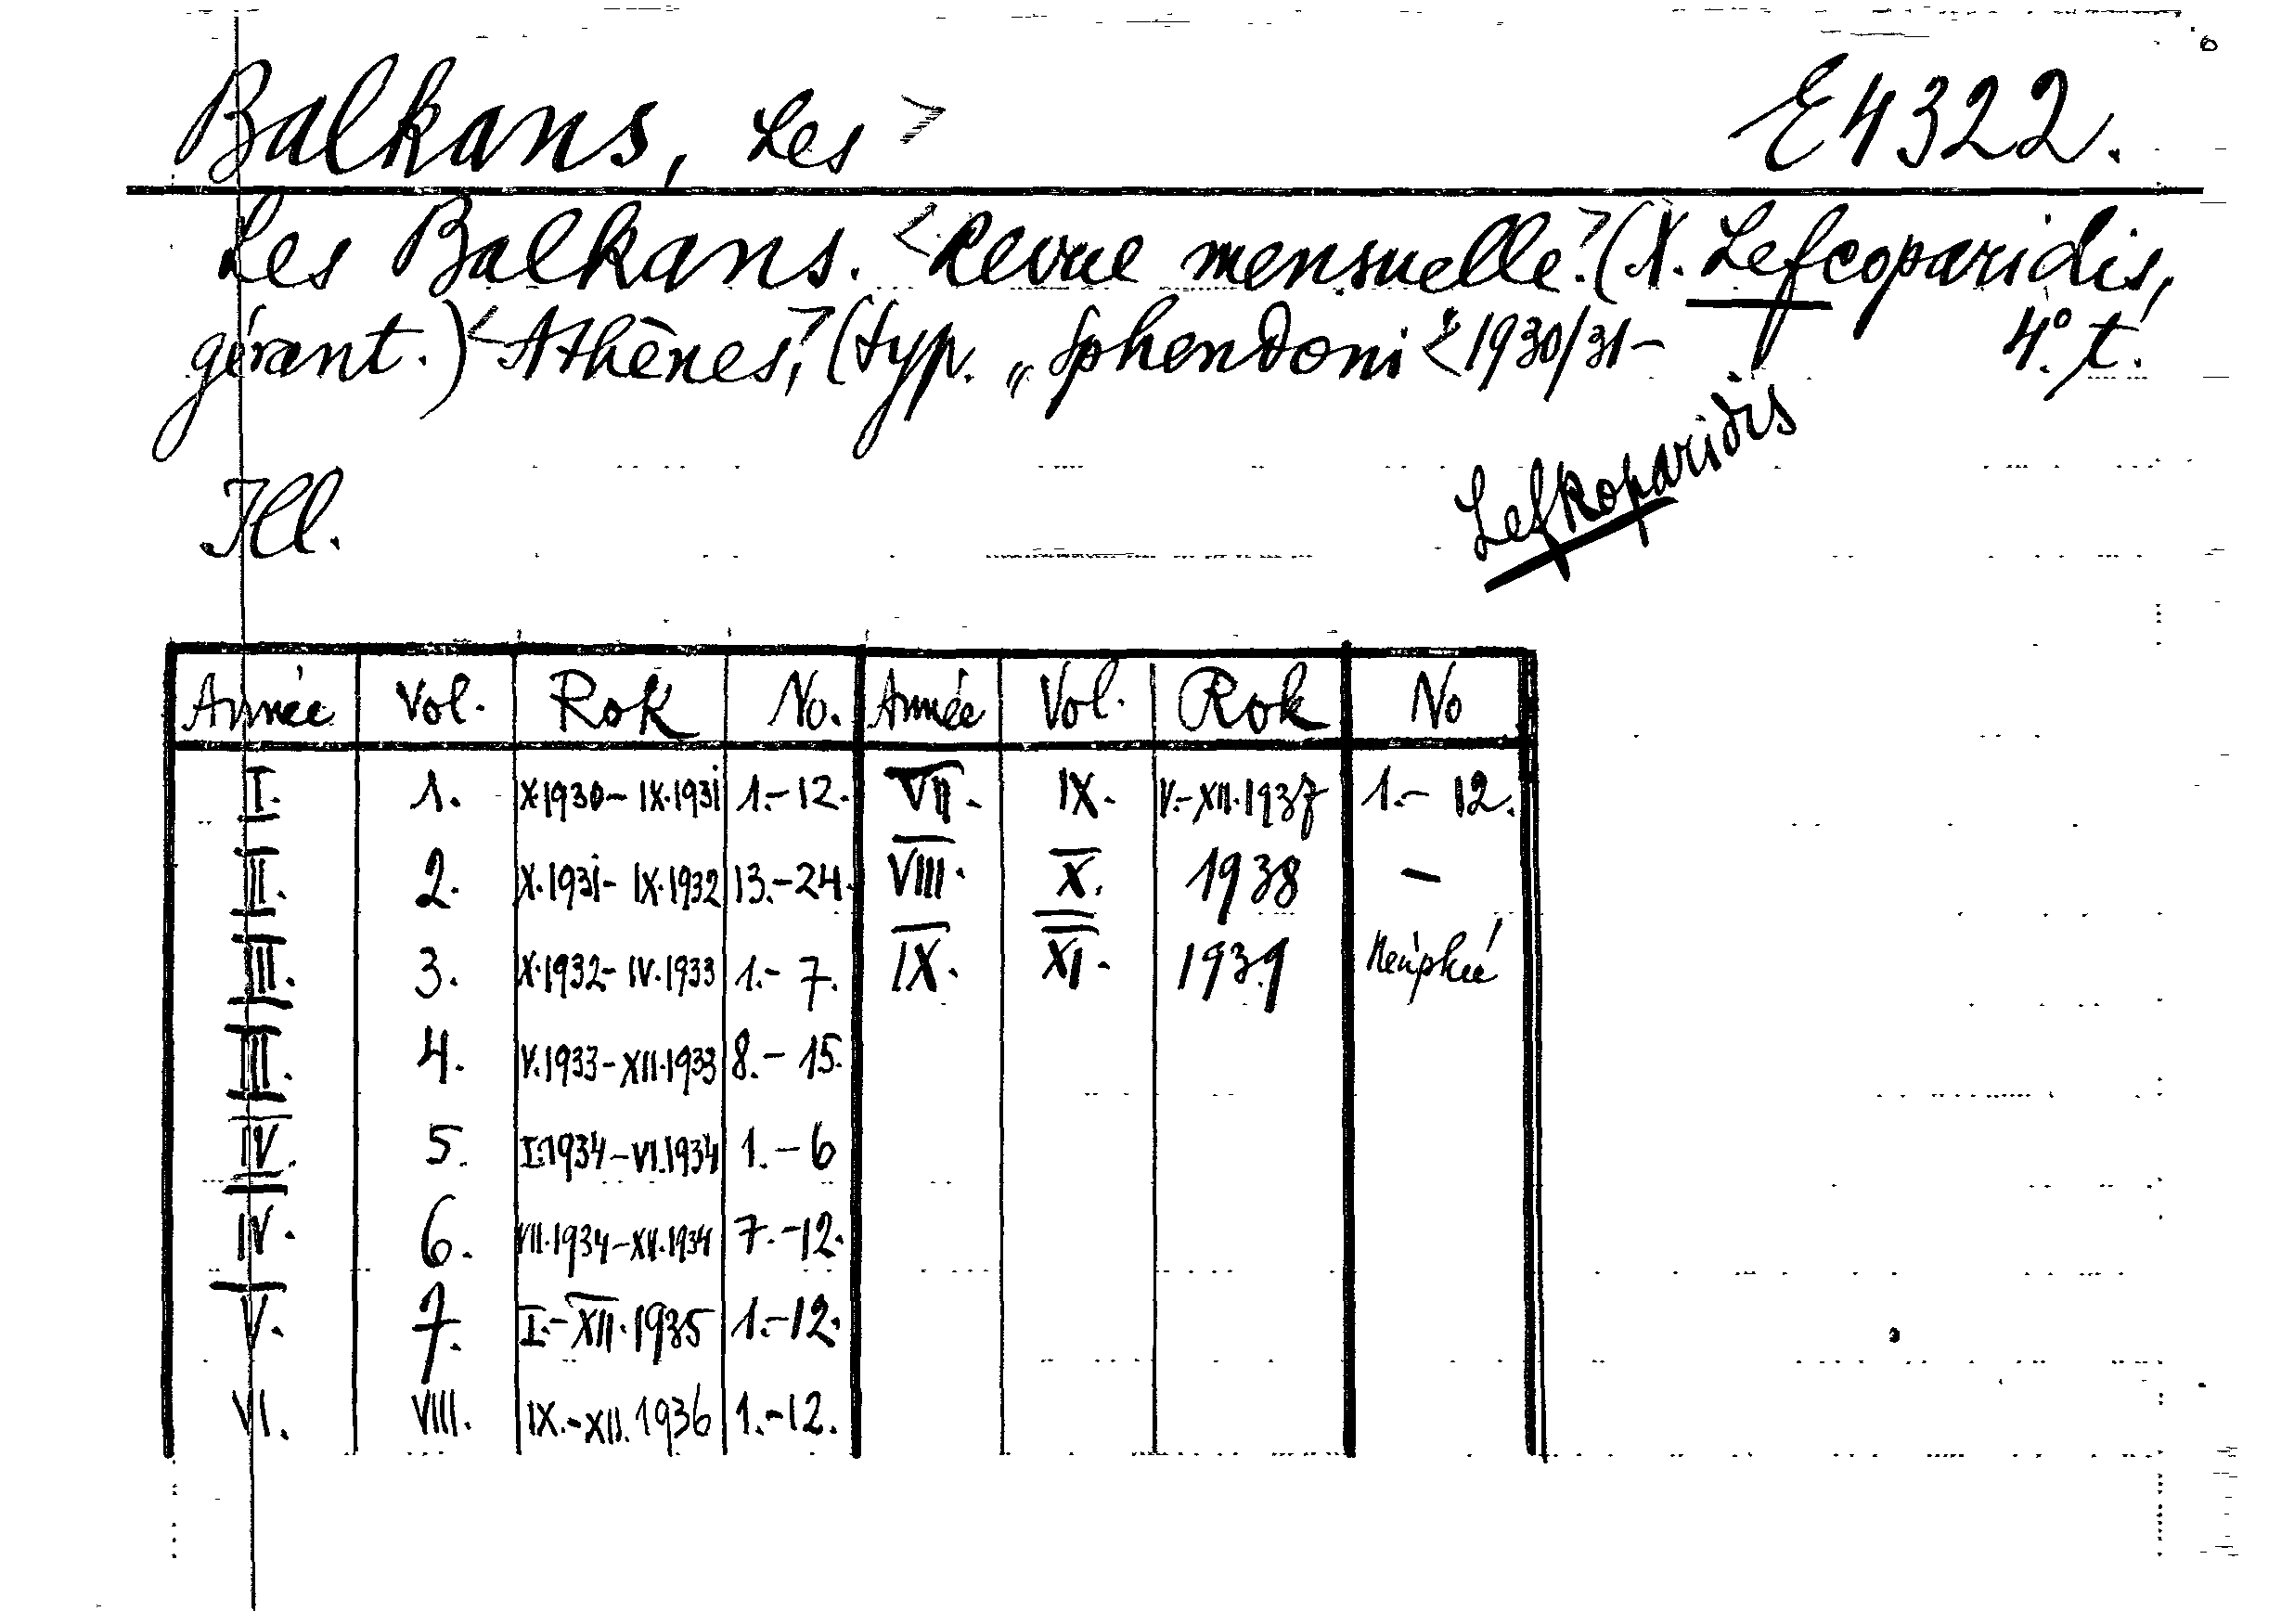 Balkans, Les> E4322.
Les Balkans. <Revue mensuelle.> (X. Lefcoparidis,
gérant.) <Athènes,> (typ. „Sphendoni <1930/31- 4°. t.
Lefkoparidis
Ill.
Année Vol. Rok No. Année Vol. Rok No
I. 1. X.1930–IX.1931 1.–12. VII. IX. V.–XII.1937 1.– 12.
II. 2. X.1931–IX.1932 13.–24. VIII. X. 1938 –
III. 3. X.1932–IV.1933 1.– 7. IX. XI. 1939
III. 4. V.1933–XII.1933 8.– 15.
IV. 5. I.1934–VI.1934 1.–6
IV. 6. VII.1934–XII.1934 7.–12.
V. 7. I.–XII.1935 1.–12.
VI. VIII. IX.–XII.1936 1.–12.